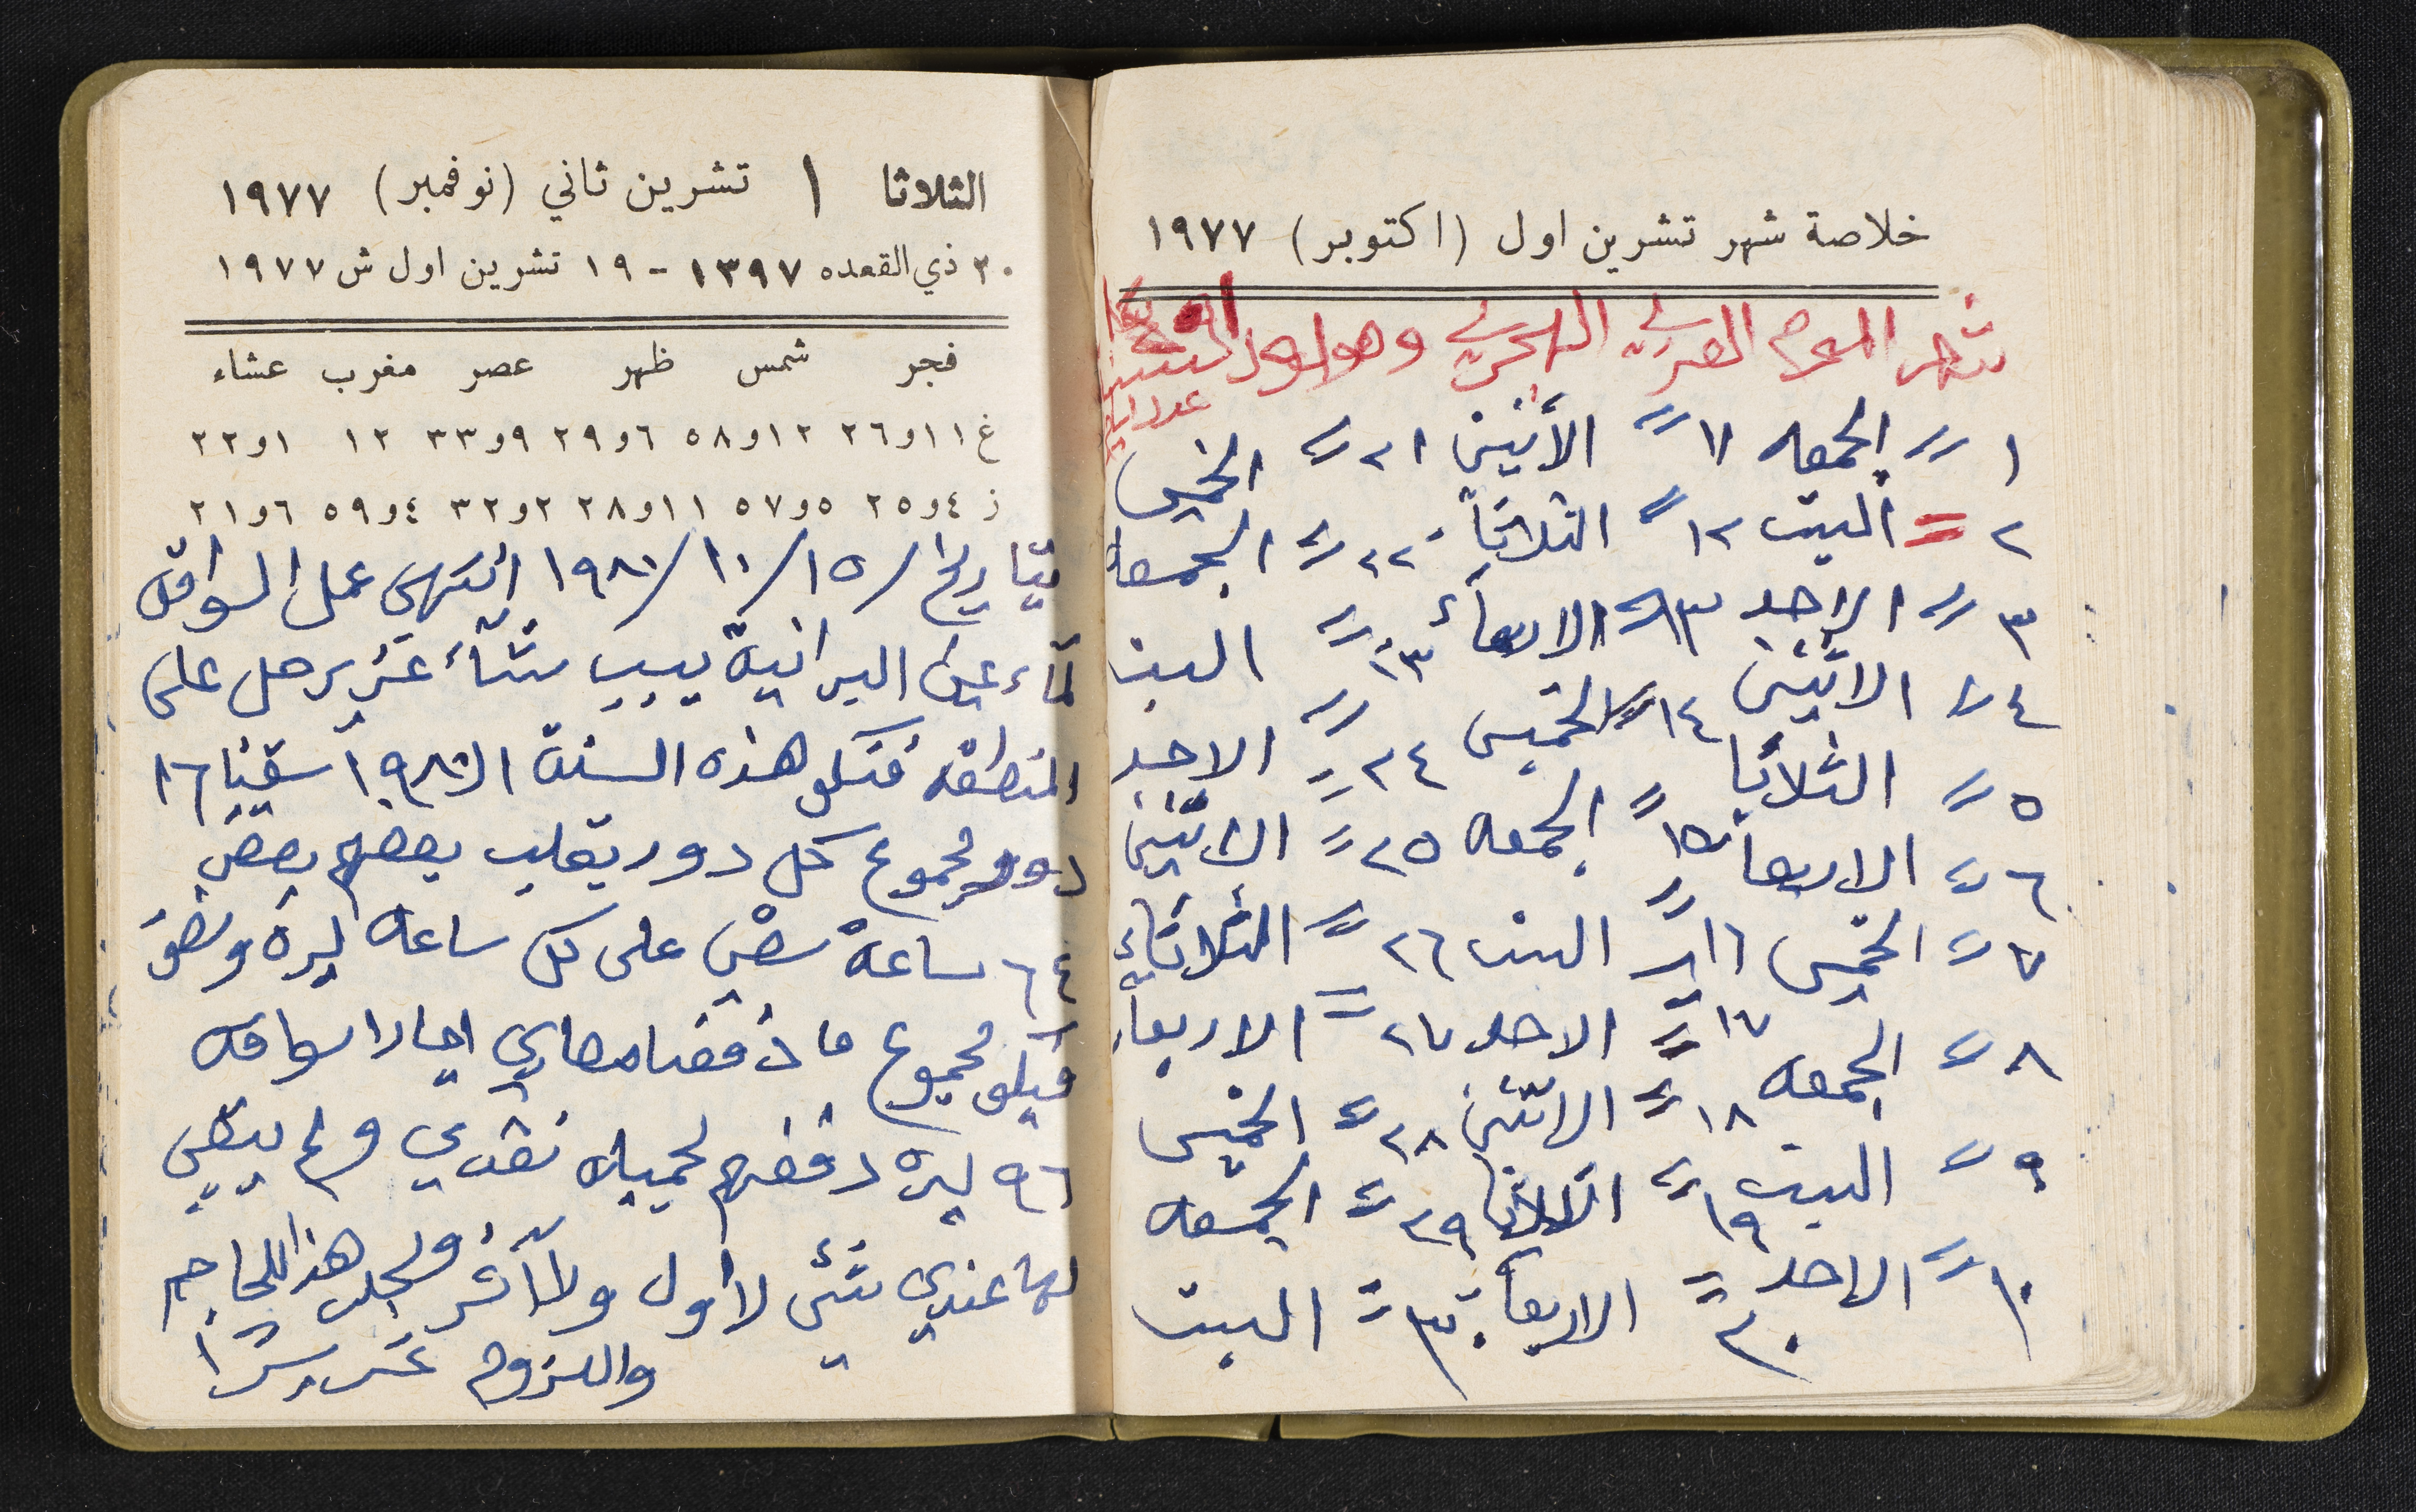 خلاصة شهر تشرين اول (اكتوبر) ١٩٧٧
شهر المحرم العربي الهجري وهو اول السنة
عدد ايام
١ = الجمعه ١١ = الأثنين ٢١ = الخميس
٢ = السبت ١٢ = الثلاثاً ٢٢ = الجمعة
٣ = الاحد ١٣ = الاربعاً ٢٣ = السبت
٤ = الاثنين ١٤ = الخميس ٢٤ = الاحد
٥ = الثلاثا ١٥ = الجمعه ٢٥ = الاثنين
٦ = الاربعا ١٦ = السبت ٢٦ = الثلاثاء
٧ = الخميس ١٧ = الاحد ٢٧ = الاربعاً
٨ = الجمعه ١٨ = الاثنين ٢٨ = الخميس
٩ = السبت ١٩ = الثلاثا ٢٩ = الجمعه
١٠ = الاحد ٢٠ = الاربعاً ٣٠ = السبت
الثلاثا ١ تشرين ثاني (نوفمبر) ١٩٧٧
٢٠ ذي القعده ١٣٩٧ - ١٩ تشرين اول ش ١٩٧٧
فجر شمس ظهر عصر مغرب عشاء
غ ١١و٢٦ ١٢و٥٨ ٦و٢٩ ٩و٣٣ ١٢ ١و٢٢
ز ٤و٢٥ ٥و٥٧ ١١و٢٨ ٢و٣٢ ٤و٥٩ ٦و٢١
بتاريخ /١٥/١٠/١٩٨٠ انتهى عمل السواقه
لماء عين البرانية بسبب شتاء غزير هل على
المنطقه فتكو هذه السنة ال١٩٨٠ سقينا ١٦
دور مجموع كل دور يقلب بعضهم بعض
٦٤ ساعة سقي على كل ساعه ليرة ونصف
فيكو مجموع ما دفعنا مصاري اجار اسواقه
٩٦ ليره دفعهم لحميله نقدي ولم يبقى
لها عندي شئ لا أول ولا آخر ولجل هذا للحاجه
واللزوم